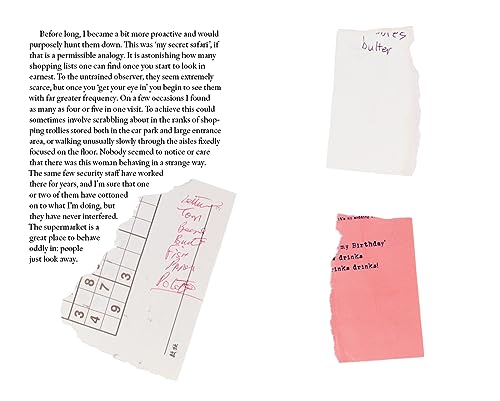 Before long, I became a bit more proactive and would
purposely hunt them down. This was ‘my secret safari’, if
that is a permissible analogy. It is astonishing how many
shopping lists one can find once you start to look in
earnest. To the untrained observer, they seem extremely
scarce, but once you ‘get your eye in’ you begin to see them
with far greater frequency. On a few occasions I found
as many as four or five in one visit. To achieve this could
sometimes involve scrabbling about in the ranks of shop-
ping trollies stored both in the car park and large entrance
area, or walking unusually slowly through the aisles fixedly
focused on the floor. Nobody seemed to notice or care
that there was this woman behaving in a strange way.
The same few security staff have worked
there for years, and I’m sure that one
or two of them have cottoned
on to what I’m doing, but
they have never interfered.
The supermarket is a
great place to behave
oddly in: people
just look away.
Tom
Fish
3
8 7 9
3 4
butter
my Birthday’
drinka
rinka drinka!